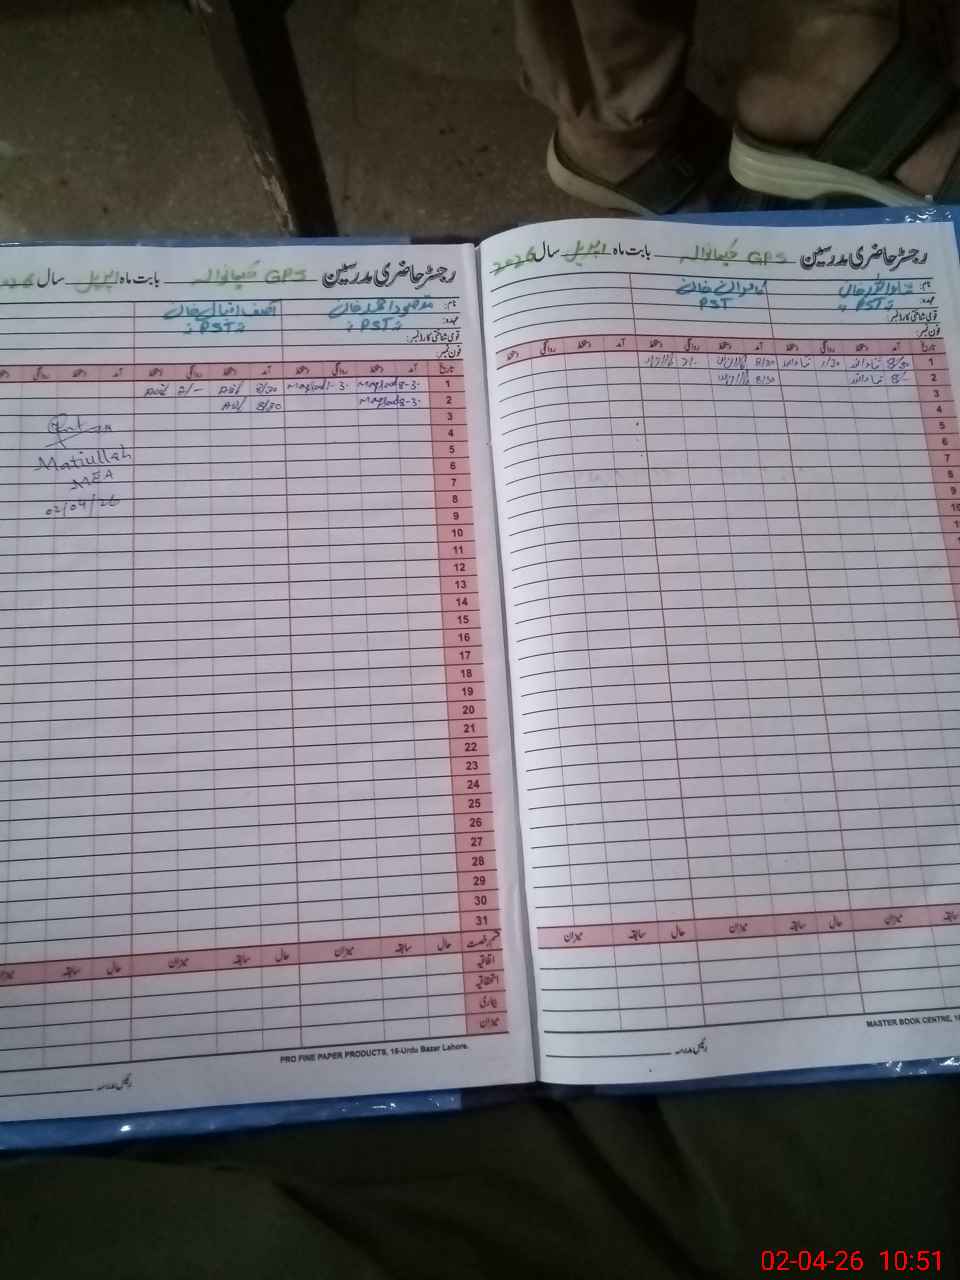 رجسٹر حاضری مدرسین GPS بابت ماہ اپریل سال 2026
نام:
عہدہ: PST PST
قومی شناختی کارڈ نمبر:
فون نمبر:
تاریخ آمد دستخط روانگی دستخط آمد دستخط روانگی دستخط آمد دستخط روانگی دستخط
1 8/30 ثناءاللہ 1/30 ثناءاللہ 8/30 2/-
2 8/- ثناءاللہ 8/30
3
4
5
6
7
8
9
10
11
میزان حال سابقہ میزان حال سابقہ میزان
رئیس مدرسہ
MASTER BOOK CENTRE, 1
رجسٹر حاضری مدرسین GPS بابت ماہ اپریل سال 2026
نام: مقصود احمد خان آصف اقبال خان
عہدہ: PST PST
قومی شناختی کارڈ نمبر:
فون نمبر:
تاریخ آمد دستخط روانگی دستخط آمد دستخط روانگی دستخط آمد دستخط روانگی دستخط
1 8-3 Maqsood 1-3 Maqsood 8/30 2/-
2 8-3 Maqsood 8/30
3
4
5
6
7
8
9
10
11
12
13
14
15
16
17
18
19
20
21
22
23
24
25
26
27
28
29
30
31
Matiullah
MEA
02/04/26
قسم رخصت حال سابقہ میزان حال سابقہ میزان حال سابقہ میزان
اتفاقیہ
استحقاقیہ
بیماری
میزان
PRO FINE PAPER PRODUCTS, 16-Urdu Bazar Lahore.
رئیس مدرسہ
02-04-26 10:51